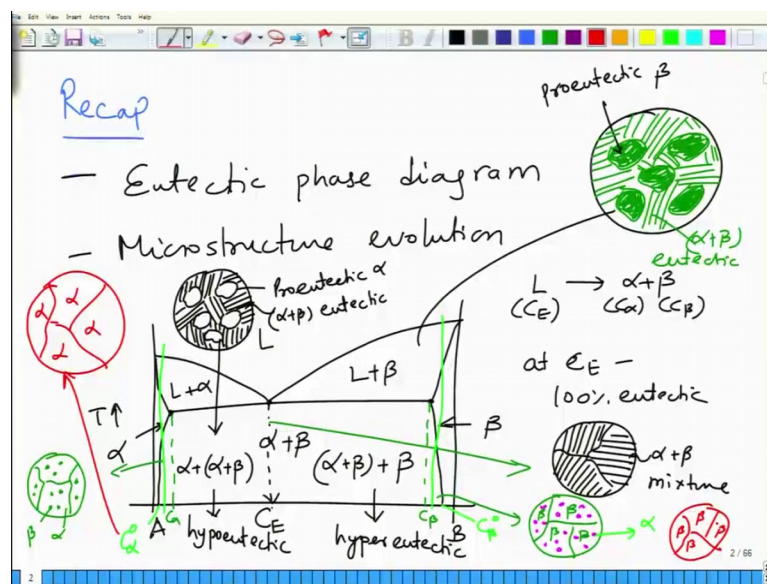 File Edit View Insert Actions Tools Help
B I
Recap
— Eutectic phase diagram
— Microstructure evolution
Proeutectic β
(α+β)
eutectic
Proeutectic α
(α+β) eutectic
L
L → α+β
(C_E) (Cα) (Cβ)
at C_E —
100% eutectic
α+β
mixture
α
α
α
α
T↑
L+α
L+β
α
β
α+β
α+(α+β)
(α+β)+β
β α
C°α
A
Cα
C_E
Cβ
B
C°β
hypoeutectic
hypereutectic
β
β
β
β
α
β
β
β
β
2 / 66
2